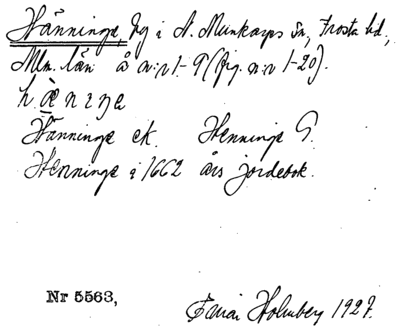 Hänninge, by i N. Munkarps sn, Frosta hd,
Mlm. län å n:r 1-9 (fig. n:r 1-20).
hæniŋe
Hänninge ek. Henninge G.
Henninge i 1662 års jordebok.
Nr 5563, Holmberg 1927.